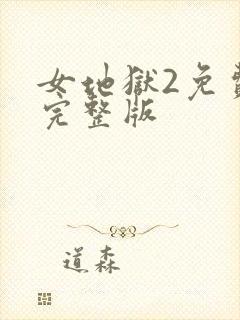 女地獄2免費
完整版
道森